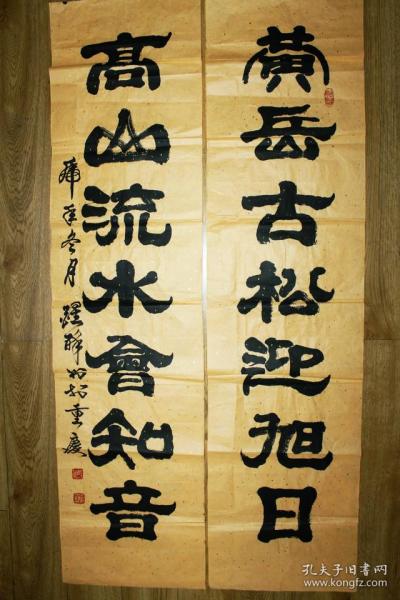 黄岳古松迎旭日
高山流水會知音
年冬月
重慶
孔夫子旧書网
www.kongfz.com